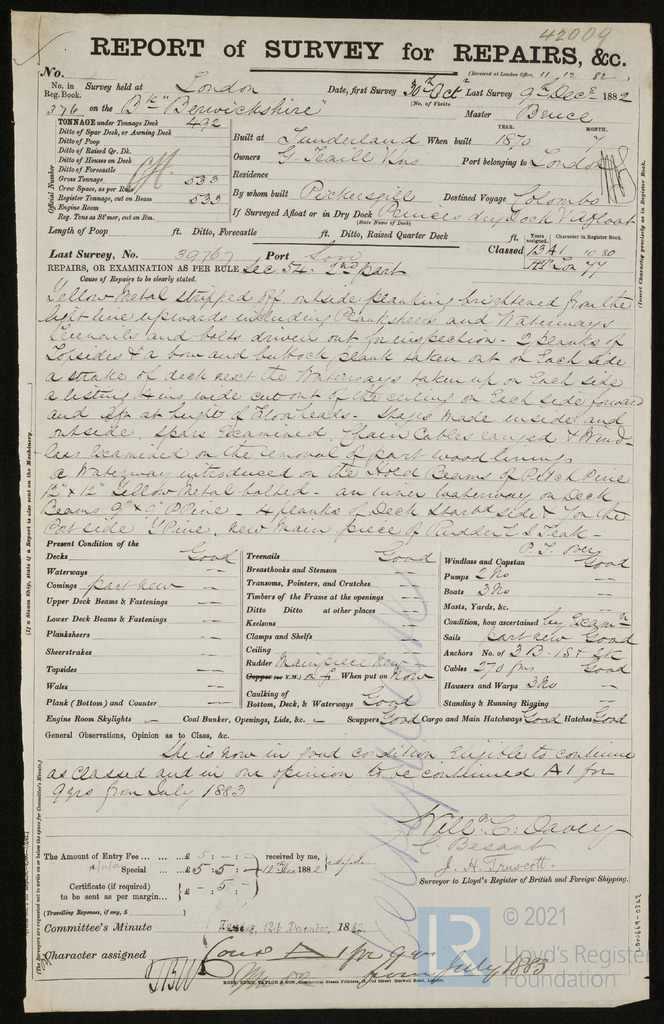 42009
REPORT of SURVEY for REPAIRS, &c.
No.
(Received at London Office, 11 12 82)
No. in Reg. Book. Survey held at London Date, first Survey 30th Oct Last Survey 9th Decr 1882
(No. of Visits
376 on the Bk "Berwickshire" Master Bruce
TONNAGE under Tonnage Deck 492
Ditto of Spar Deck, or Awning Deck
Ditto of Poop
Ditto of Raised Qr. Dk.
Ditto of Houses on Deck
Ditto of Forecastle
Gross Tonnage 533
Crew Space, as per Rule
Register Tonnage, cut on Beam 533
Engine Room
Reg. Tons as St'mer, cut on Bm.
Official Number
YEAR. MONTH.
Built at Sunderland When built 1870 7
Owners G. Teaill Port belonging to London
Residence
By whom built Pickersgill Destined Voyage Colombo
If Surveyed Afloat or in Dry Dock Princes dry dock & afloat
(State Name of Dock)
Length of Poop ft. Ditto, Forecastle ft. Ditto, Raised Quarter Deck ft.
Last Survey, No. 39767 Port Lon
Years assigned. Character in Register Book.
Classed 13 A1 10.80
Lon 77
REPAIRS, OR EXAMINATION AS PER RULE Sec 54. 2nd part
Cause of Repairs to be clearly stated.
Yellow Metal stripped off outside planking brightened from the
light line upwards including Planksheers and Waterways
Treenails and bolts driven out for inspection - 2 planks of
Topsides & a bow and buttock plank taken out on Each Side
a strake of deck next the Waterways taken up on Each Side
a listing 4 ins wide cut out of the ceiling on Each Side forward
and aft at height of Floorheads - Stages made inside and
outside, Spars Examined, Chain Cables ranged & Wind-
lass Examined on the removal of part wood lining,
a Waterway introduced on the Hold Beams of Pitch Pine
12" x 12" Yellow Metal bolted - an inner waterway on Deck
Beams 9" x 9" P Pine - 4 planks of Deck Starbd side & for the
Port side Y Pine, new Main piece of Rudder E I Teak -
P. T. Over
Present Condition of the
Decks Good
Waterways
Comings part new
Upper Deck Beams & Fastenings
Lower Deck Beams & Fastenings
Planksheers
Sheerstrakes
Topsides
Wales
Plank (Bottom) and Counter
Treenails Good
Breasthooks and Stemson
Transoms, Pointers, and Crutches
Timbers of the Frame at the openings
Ditto Ditto at other places
Keelsons
Clamps and Shelfs
Ceiling
Rudder Mainpiece New
Copper (or Y.M.) When put on Now
Caulking of Bottom, Deck, & Waterways Good
Windlass and Capstan Good
Pumps 2 No
Boats 3 No
Masts, Yards, &c.
Condition, how ascertained by Examn
Sails part new Good
Anchors No. of 3 B. 1 St 2 K
Cables 270 fms Good
Hawsers and Warps 3 No
Standing & Running Rigging
Engine Room Skylights Coal Bunker, Openings, Lids, &c. Scuppers Good Cargo and Main Hatchways Good Hatches Good
General Observations, Opinion as to Class, &c.
She is now in good condition Eligible to continue
as Classed and in our opinion to be continued A1 for
9 yrs from July 1883
Willm C. Davey
C. Besant
J. H. Truscott
Surveyor to Lloyd's Register of British and Foreign Shipping.
The Amount of Entry Fee ... £ 5 : - : -
Special ... £ 5 : 5 : -
received by me,
12th Dec 1882
Certificate (if required) to be sent as per margin... £ - : 5 : -
(Travelling Expenses, if any, £ )
Committee's Minute Tuesday 12th December, 1882.
Character assigned Contd A 1 for 9 yrs
from July 1883
(If a Steam Ship, state if a Report is also sent on the Machinery.
(The Surveyors are requested not to write on or below the space for Committee's Minute.)
(Insert Character precisely as in Register Book.
LON669-0362
LR © 2021
Lloyd's Register
Foundation